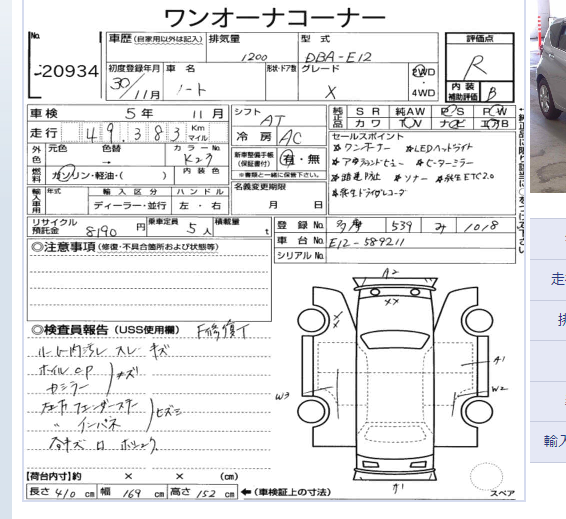 ワンオーナーコーナー
No.
-20934
車歴 (自家用以外は記入)
排気量
1200
型式
DBA-E12
評価点
R
初度登録年月
30/11月
車名
ノート
形状・ドア数
グレード
X
2WD
4WD
内装
補助評価
B
車検 5年 11月
シフト
AT
純正品
SR 純AW P/S P/W
カワ TV ナビ エアB
走行 49,383 Km マイル
冷房 AC
セールスポイント
☆ワンオーナー ☆LEDヘッドライト
☆アラウンドビュー ☆ルーミラー
☆踏間防止 ☆ソナー ☆衛生ETC2.0
☆衛生ドライブレコーダ
外色
元色
色替
カラーNo.
K23
内装色
新車整備手帳
(保証書付)
有・無
※書類と一緒に保管下さい。
燃料
ガソリン・軽油・( )
名義変更期限
月 日
輸入車用
年式
輸入区分
ハンドル
ディーラー・並行
左・右
リサイクル
預託金
8190円
乗車定員
5人
積載量
t
登録No. 多摩 539 み 1018
車台No. E12-589211
シリアルNo.
◎注意事項 (修復・不具合箇所および状態等)
◎検査員報告 (USS使用欄)
F修復T
ルーム内汚レ スレ キズ
ホイルCP
キズ
左右 フェンダーステー
〃 インパネ
【荷台内寸】約 × × (cm)
長さ 410 cm 幅 169 cm 高さ 152 cm
←(車検証上の寸法)
A2
XX
A1
W2
W3
スペア
輸入